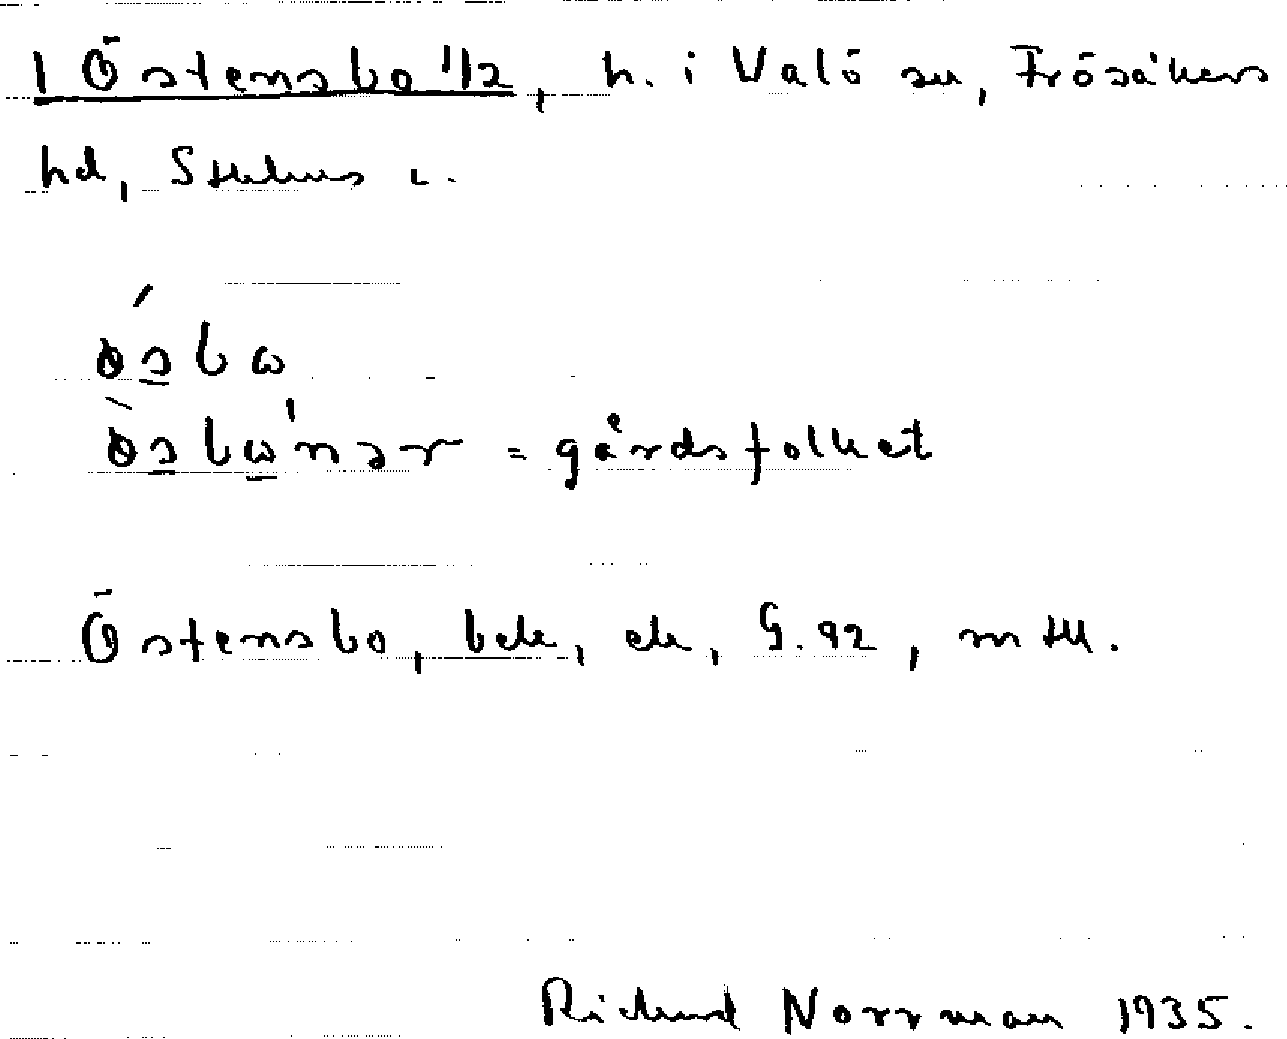 1 Östensbo 1/2, h. i Valö sn, Frösåkers
hd, Sthlms l.
ösbɷ
ösbɷnər = gårdsfolket
Östensbo, bek, ek, G. 92, mtl.
Richard Norrman 1935.